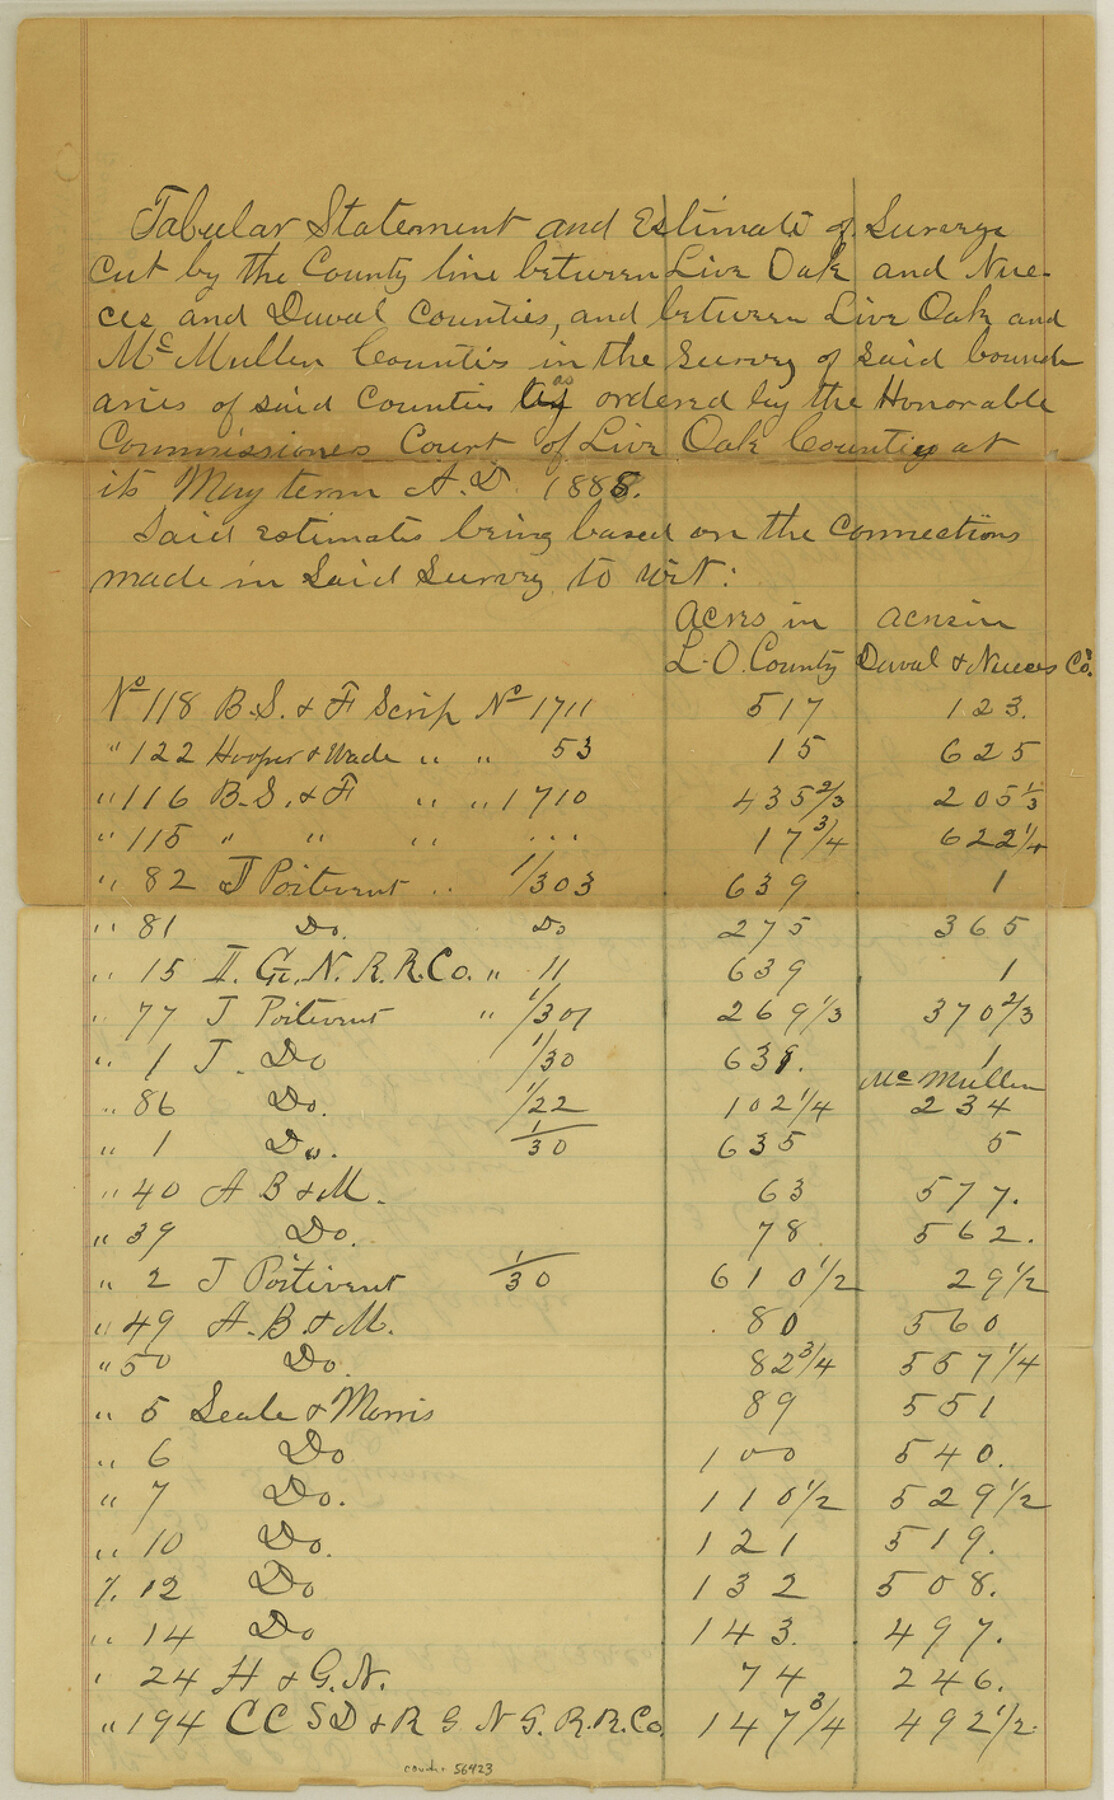 Tabular Statement and Estimate of Surveys
cut by the County line between Live Oak and Nue-
ces and Duval Counties, and between Live Oak and
McMullen Counties in the Survey of said bound
aries of said Counties as ordered by the Honorable
Commissioners Court of Live Oak County at
its May term A.D. 1888.
Said estimates being based on the connections
made in said Survey, to wit:
Acres in Acres in
L.O. County Duval & Nueces Co's.
No 118 B.S. & F Scrip No 1711 517 123.
" 122 Hooper & Wade " " 53 15 625
" 116 B.S. & F " " 1710 435 2/3 205 1/3
" 115 " " " ... 17 3/4 622 1/4
" 82 J Poitevent " 1/303 639 1
" 81 Do. Do 275 365
" 15 I. G. N. R. R. Co. " 11 639 1
" 77 J Poitevent " 1/301 269 1/3 370 2/3
" 1 J. Do 1/30 639. 1
McMullen
" 86 Do. 1/22 102 1/4 234
" 1 Do. 1/30 635 5
" 40 A B & M. 63 577.
" 39 Do. 78 562.
" 2 J Poitivent 1/30 610 1/2 29 1/2
" 49 A. B. & M. 80 560
" 50 Do. 82 3/4 557 1/4
" 5 Seale & Morris 89 551
" 6 Do 100 540.
" 7 Do. 110 1/2 529 1/2
" 10 Do. 121 519.
" 12 Do 132 508.
" 14 Do 143. 497.
" 24 H & G.N. 74 246.
" 194 CC SD & R G N G. R.R. Co. 147 3/4 492 1/2
counter 56423